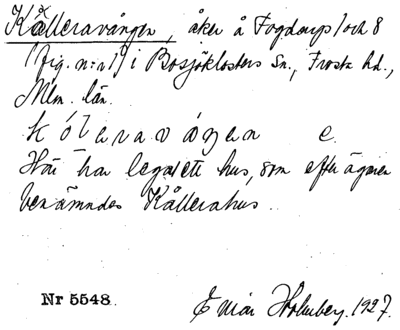 Kålleravången, åker å Fogdarp 1 och 8
(fig. n:r 1) i Bosjöklosters Sn., Frosta hd.,
Mlm. län.
kóleravåŋen e.
Här har legat ett hus, som efter ägaren
benämndes Kållerahus.
Nr 5548.
Einar Holmberg. 1927.